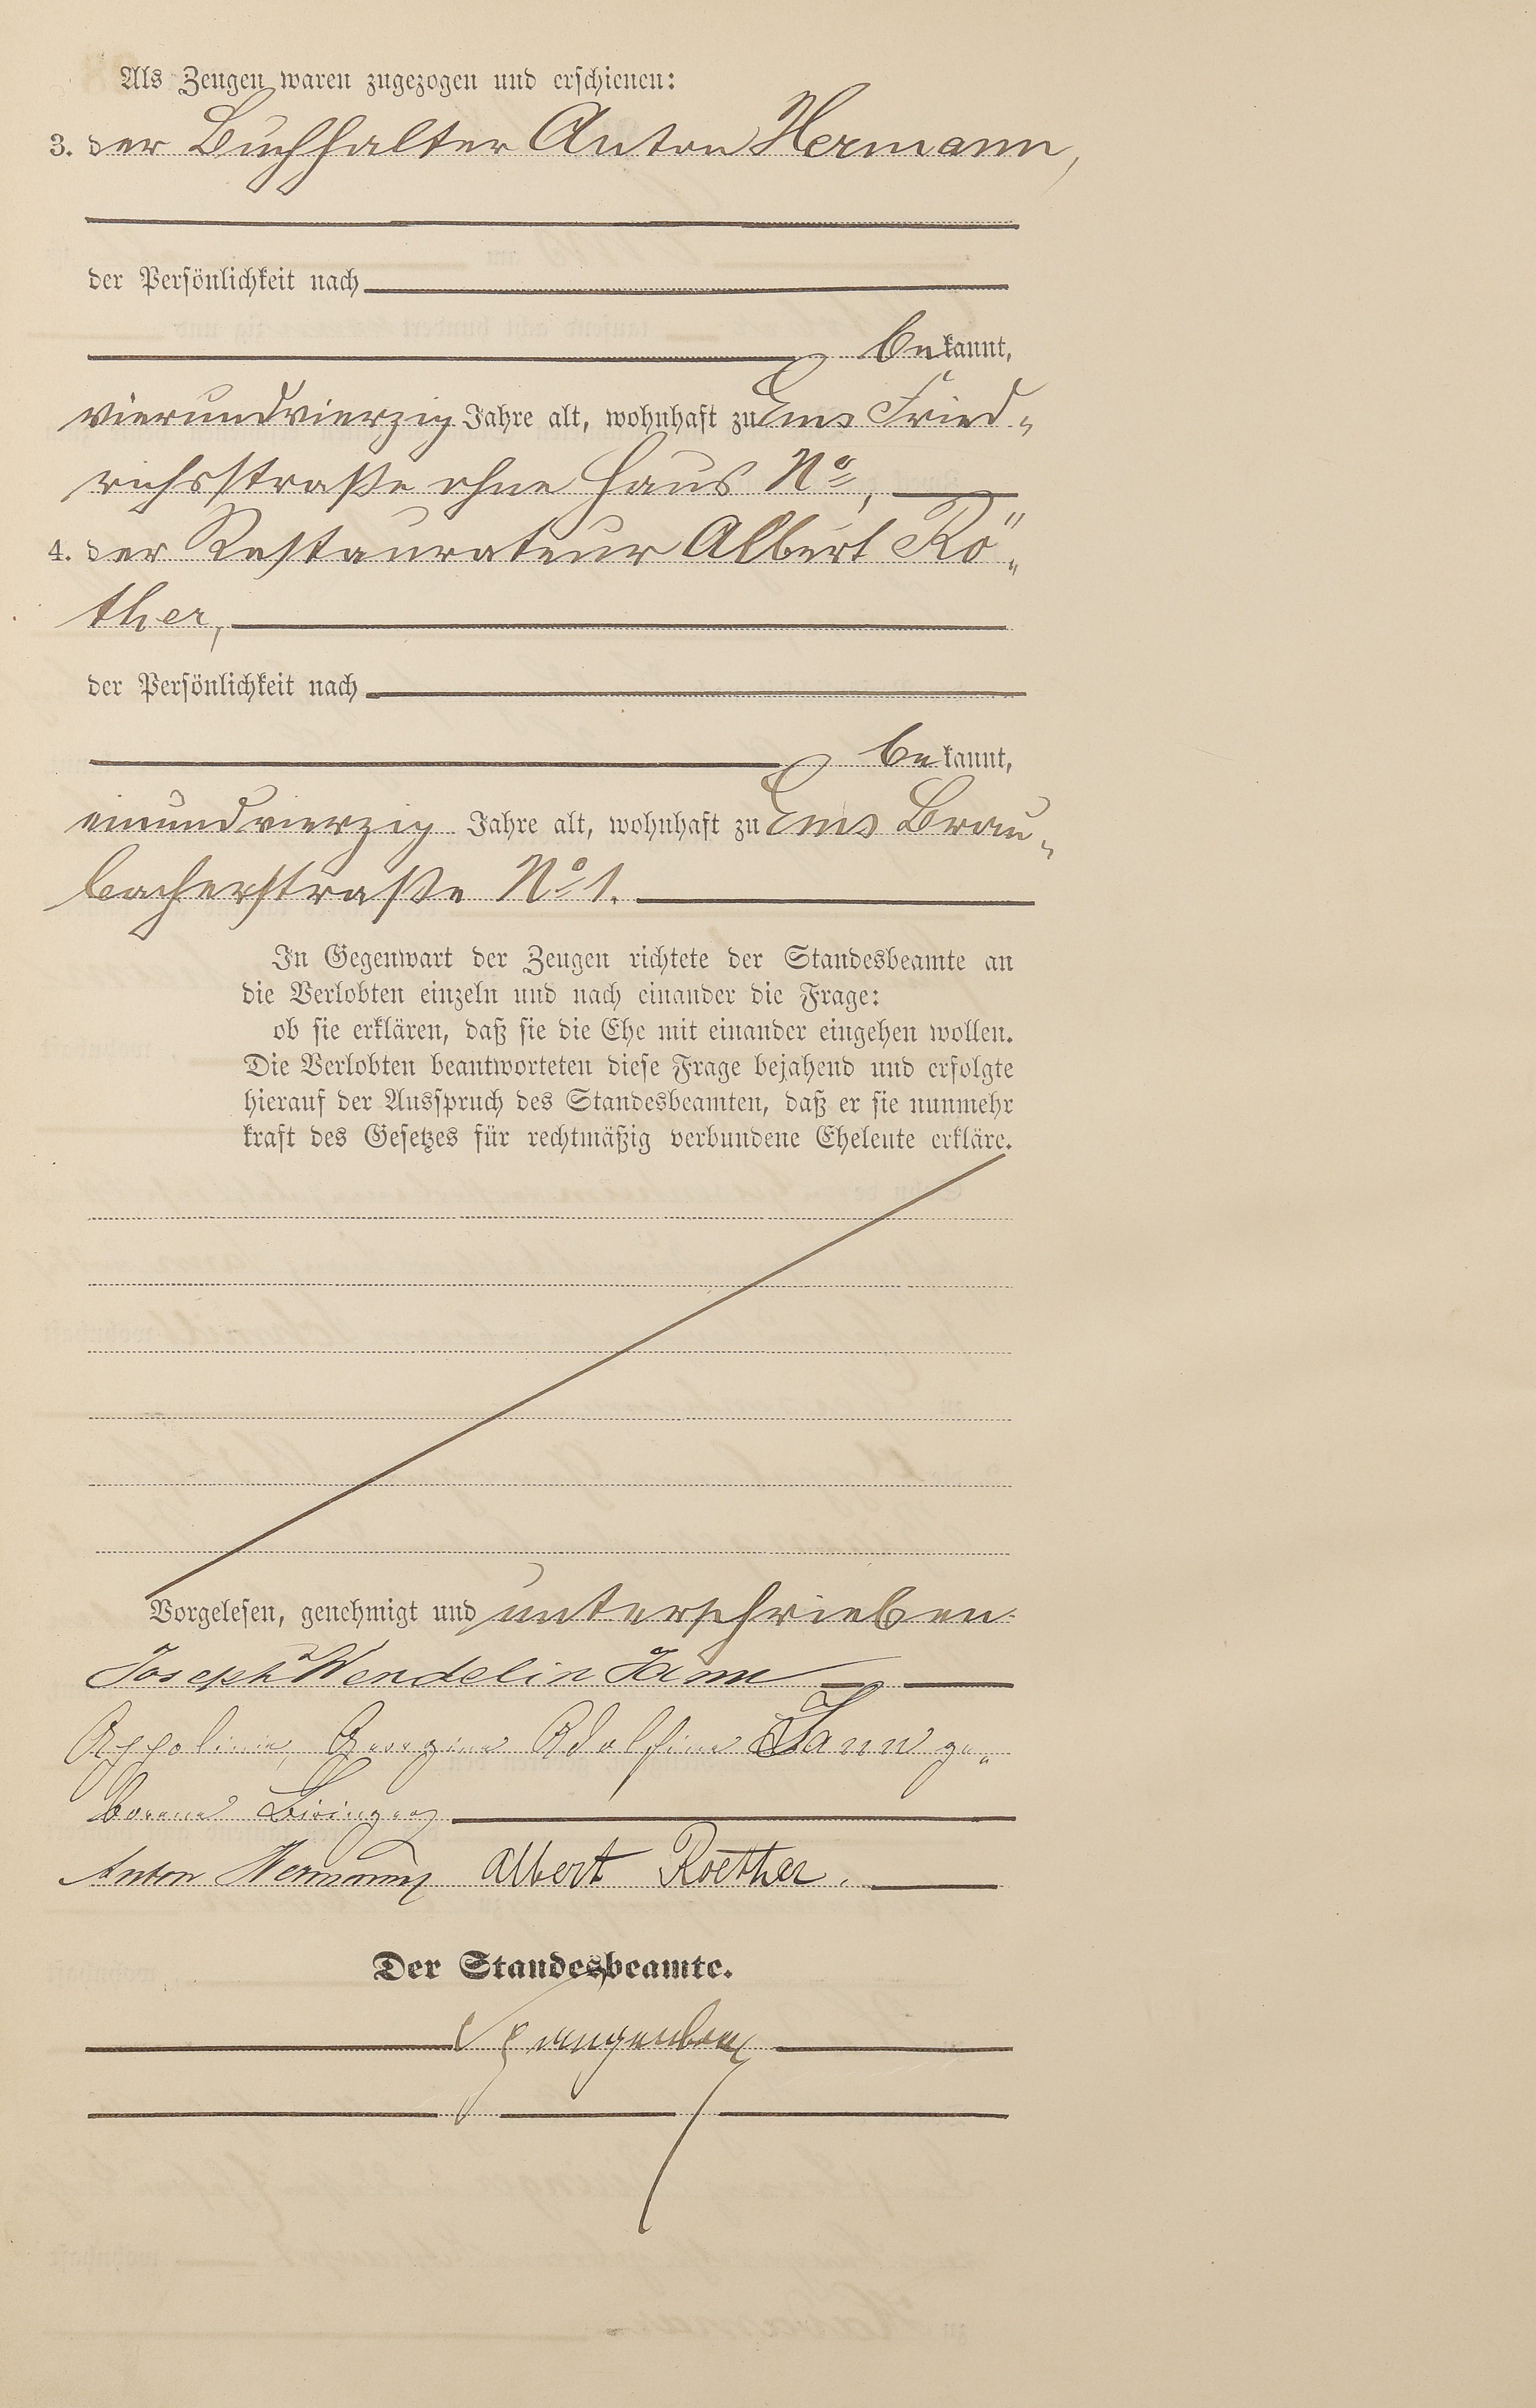 Als Zeugen waren zugezogen und erschienen:
3. der Buchhalter Anton Hermann,
der Persönlichkeit nach
bekannt,
vierundvierzig Jahre alt, wohnhaft zu Ems Fried-
richsstraße ohne Haus No,
4. der Restaurateur Albert Rö-
ther,
der Persönlichkeit nach
bekannt,
einundvierzig Jahre alt, wohnhaft zu Ems Brau-
bacherstraße No 1.
In Gegenwart der Zeugen richtete der Standesbeamte an
die Verlobten einzeln und nach einander die Frage:
ob sie erklären, daß sie die Ehe mit einander eingehen wollen.
Die Verlobten beantworteten diese Frage bejahend und erfolgte
hierauf der Ausspruch des Standesbeamten, daß er sie nunmehr
kraft des Gesetzes für rechtmäßig verbundene Eheleute erkläre.
Vorgelesen, genehmigt und unterschrieben.
Joseph Wendelin
Georgine Adolfine ge-
borene
Anton Hermann Albert Roether.
Der Standesbeamte.